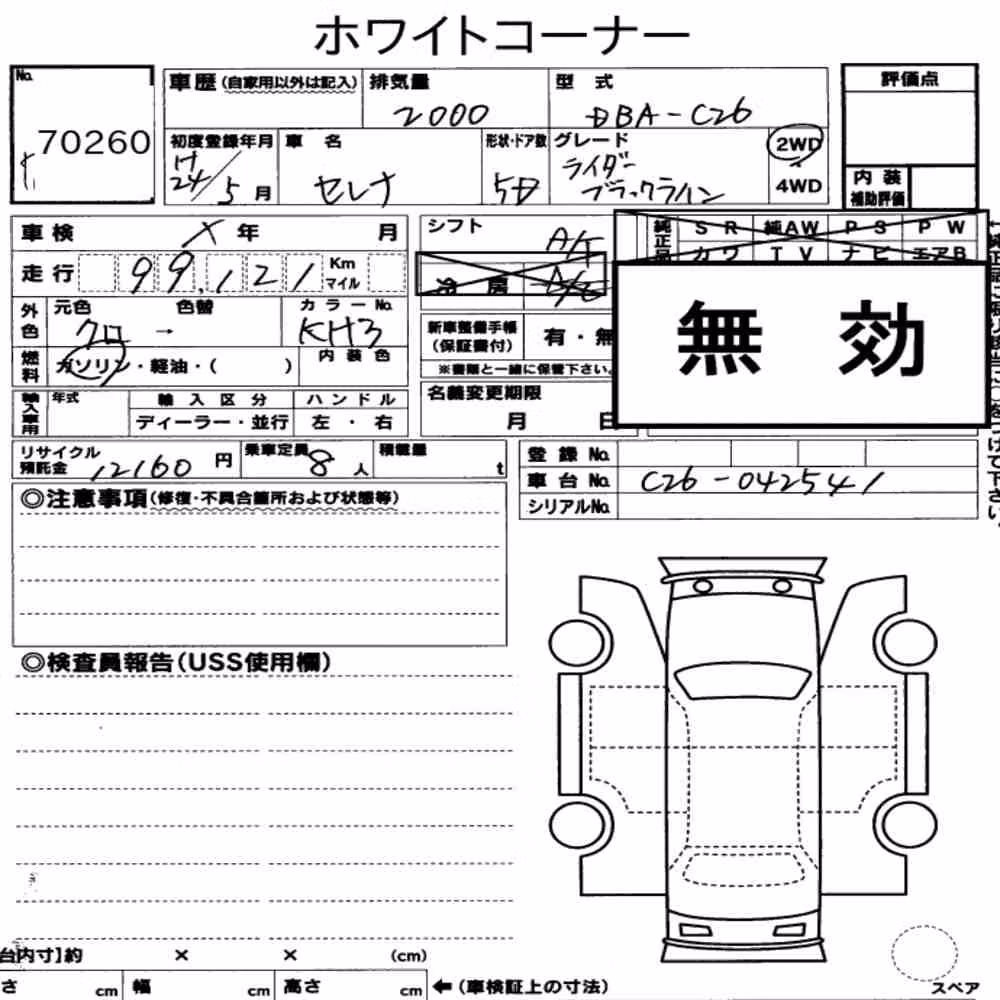 ホワイトコーナー
No.
70260
車歴(自家用以外は記入)
排気量
2000
型 式
DBA-C26
評価点
初度登録年月
H
24/5月
車 名
セレナ
形状・ドア数
5D
グレード
ライダー
ブラックライン
2WD
4WD
内 装
補助評価
車検 X 年 月
シフト
A/T
純正品
S R 純AW P S P W
カワ T V ナビ エアB
走行 99,121 Km マイル
冷 房 A/C
外色
元色 色替
クロ →
カラーNo.
KH3
新車整備手帳
(保証書付)
有・無
無 効
燃料
ガソリン・軽油・( )
内 装 色
※書類と一緒に保管下さい。
輸入車用
年式
輸 入 区 分
ハ ン ド ル
ディーラー・並行
左 ・ 右
名義変更期限
月 日
リサイクル
預託金 12160 円
乗車定員 8 人
積載量 t
登 録 No.
車 台 No. C26-042541
シリアルNo.
つけて下さい
◎注意事項(修復・不具合箇所および状態等)
◎検査員報告(USS使用欄)
台内寸】約 × × (cm)
さ cm 幅 cm 高さ cm ←(車検証上の寸法)
スペア